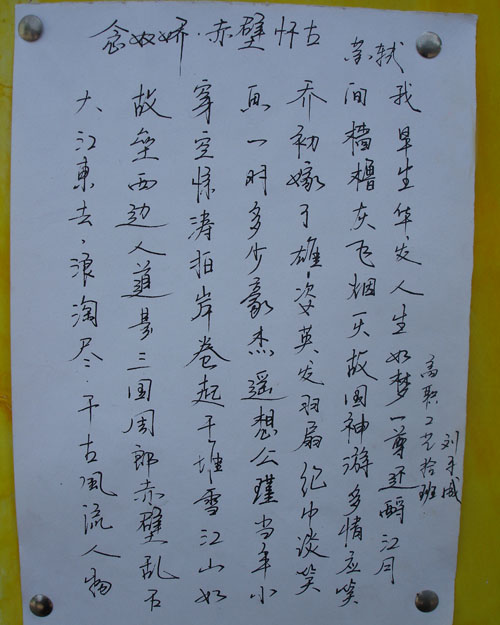 念奴娇·赤壁怀古
苏轼
大江東去,浪淘尽,千古風流人物
故垒西边人道是三国周郎赤壁乱石
穿空惊涛拍岸卷起千堆雪江山如
画一时多少豪杰遥想公瑾当年小
乔初嫁了雄姿英发羽扇纶巾谈笑
间樯橹灰飞烟灭故国神游多情应笑
我早生华发人生如梦一尊还酹江月
高职工艺拾班
刘子威